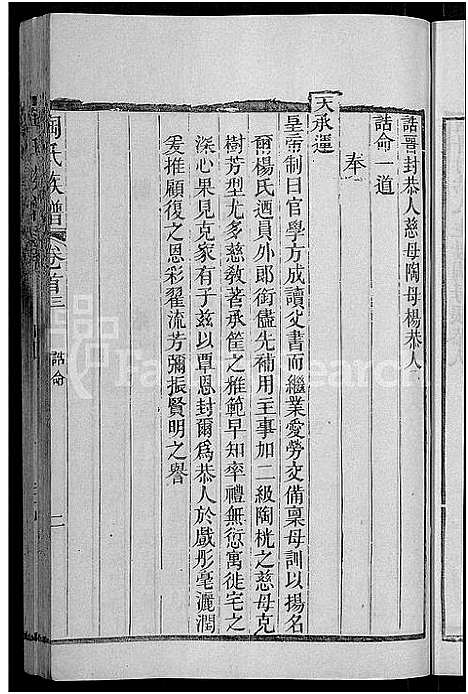 誥晉封恭人慈母陶母楊恭人
誥命一道
奉
天承運
皇帝制曰官學方成讀父書而繼業愛勞交備稟母訓以揚名
爾楊氏迺員外郎銜儘先補用主事加二級陶桄之慈母克
樹芳型尤多慈教著承筐之雅範早知率禮無愆寓徙宅之
深心果見克家有子茲以覃恩封爾為恭人於戲彤毫灑潤
爰推顧復之恩彩翟流芳彌振賢明之譽
陶氏族譜 卷首三 誥命 二